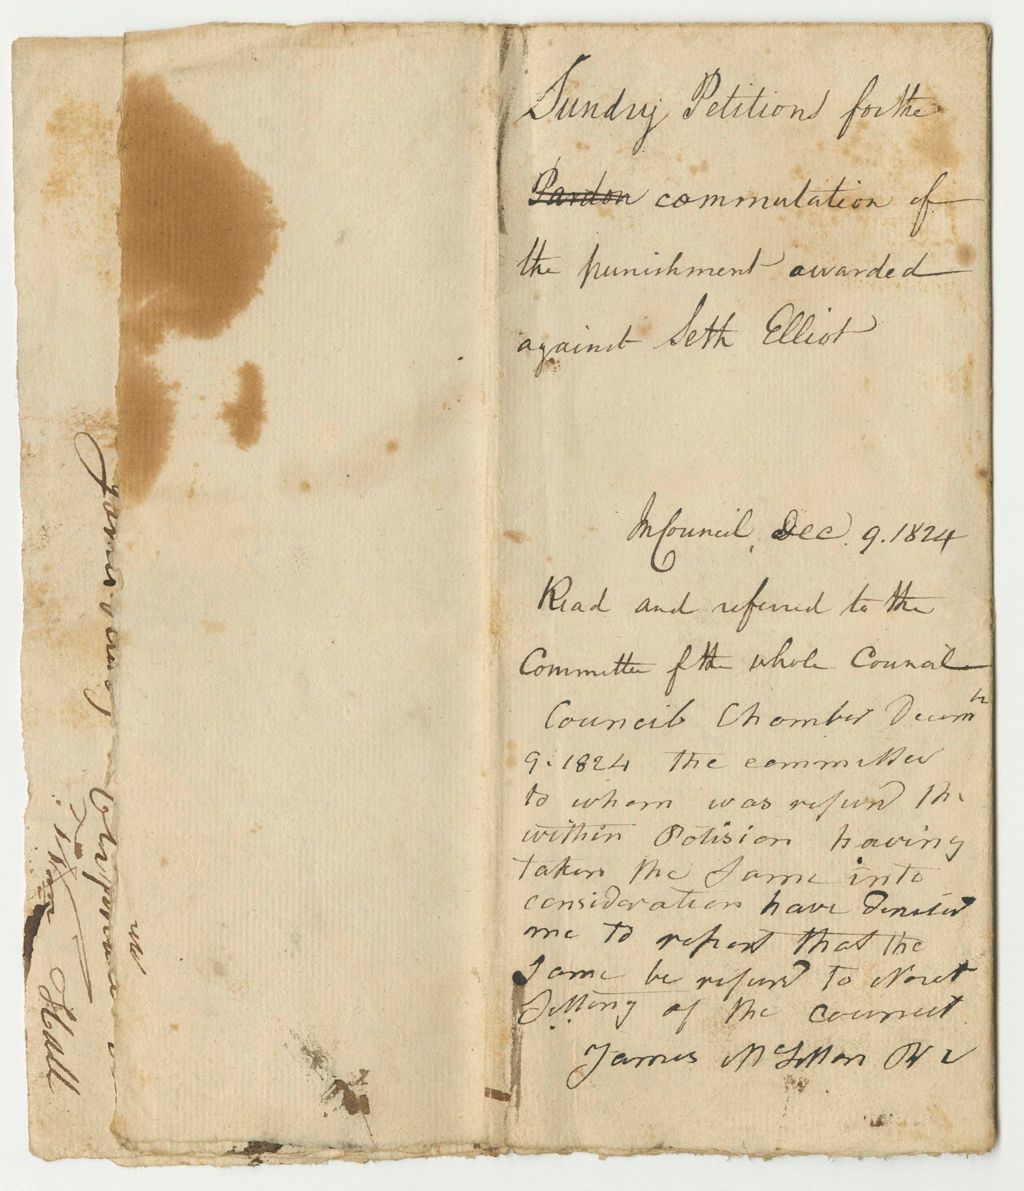 Sundry Petitions for the
Pardon commutation of
the punishment awarded
against Seth Elliot
In Council, Dec. 9. 1824
Read and referred to the
Committee of the whole Council
Council Chamber Decem
9. 1824 the committee
to whom was referd the
within Potision having
taken the Same into
consideration have
me to report that the
Same be referd to Next
Sitting of the council
James
Hall